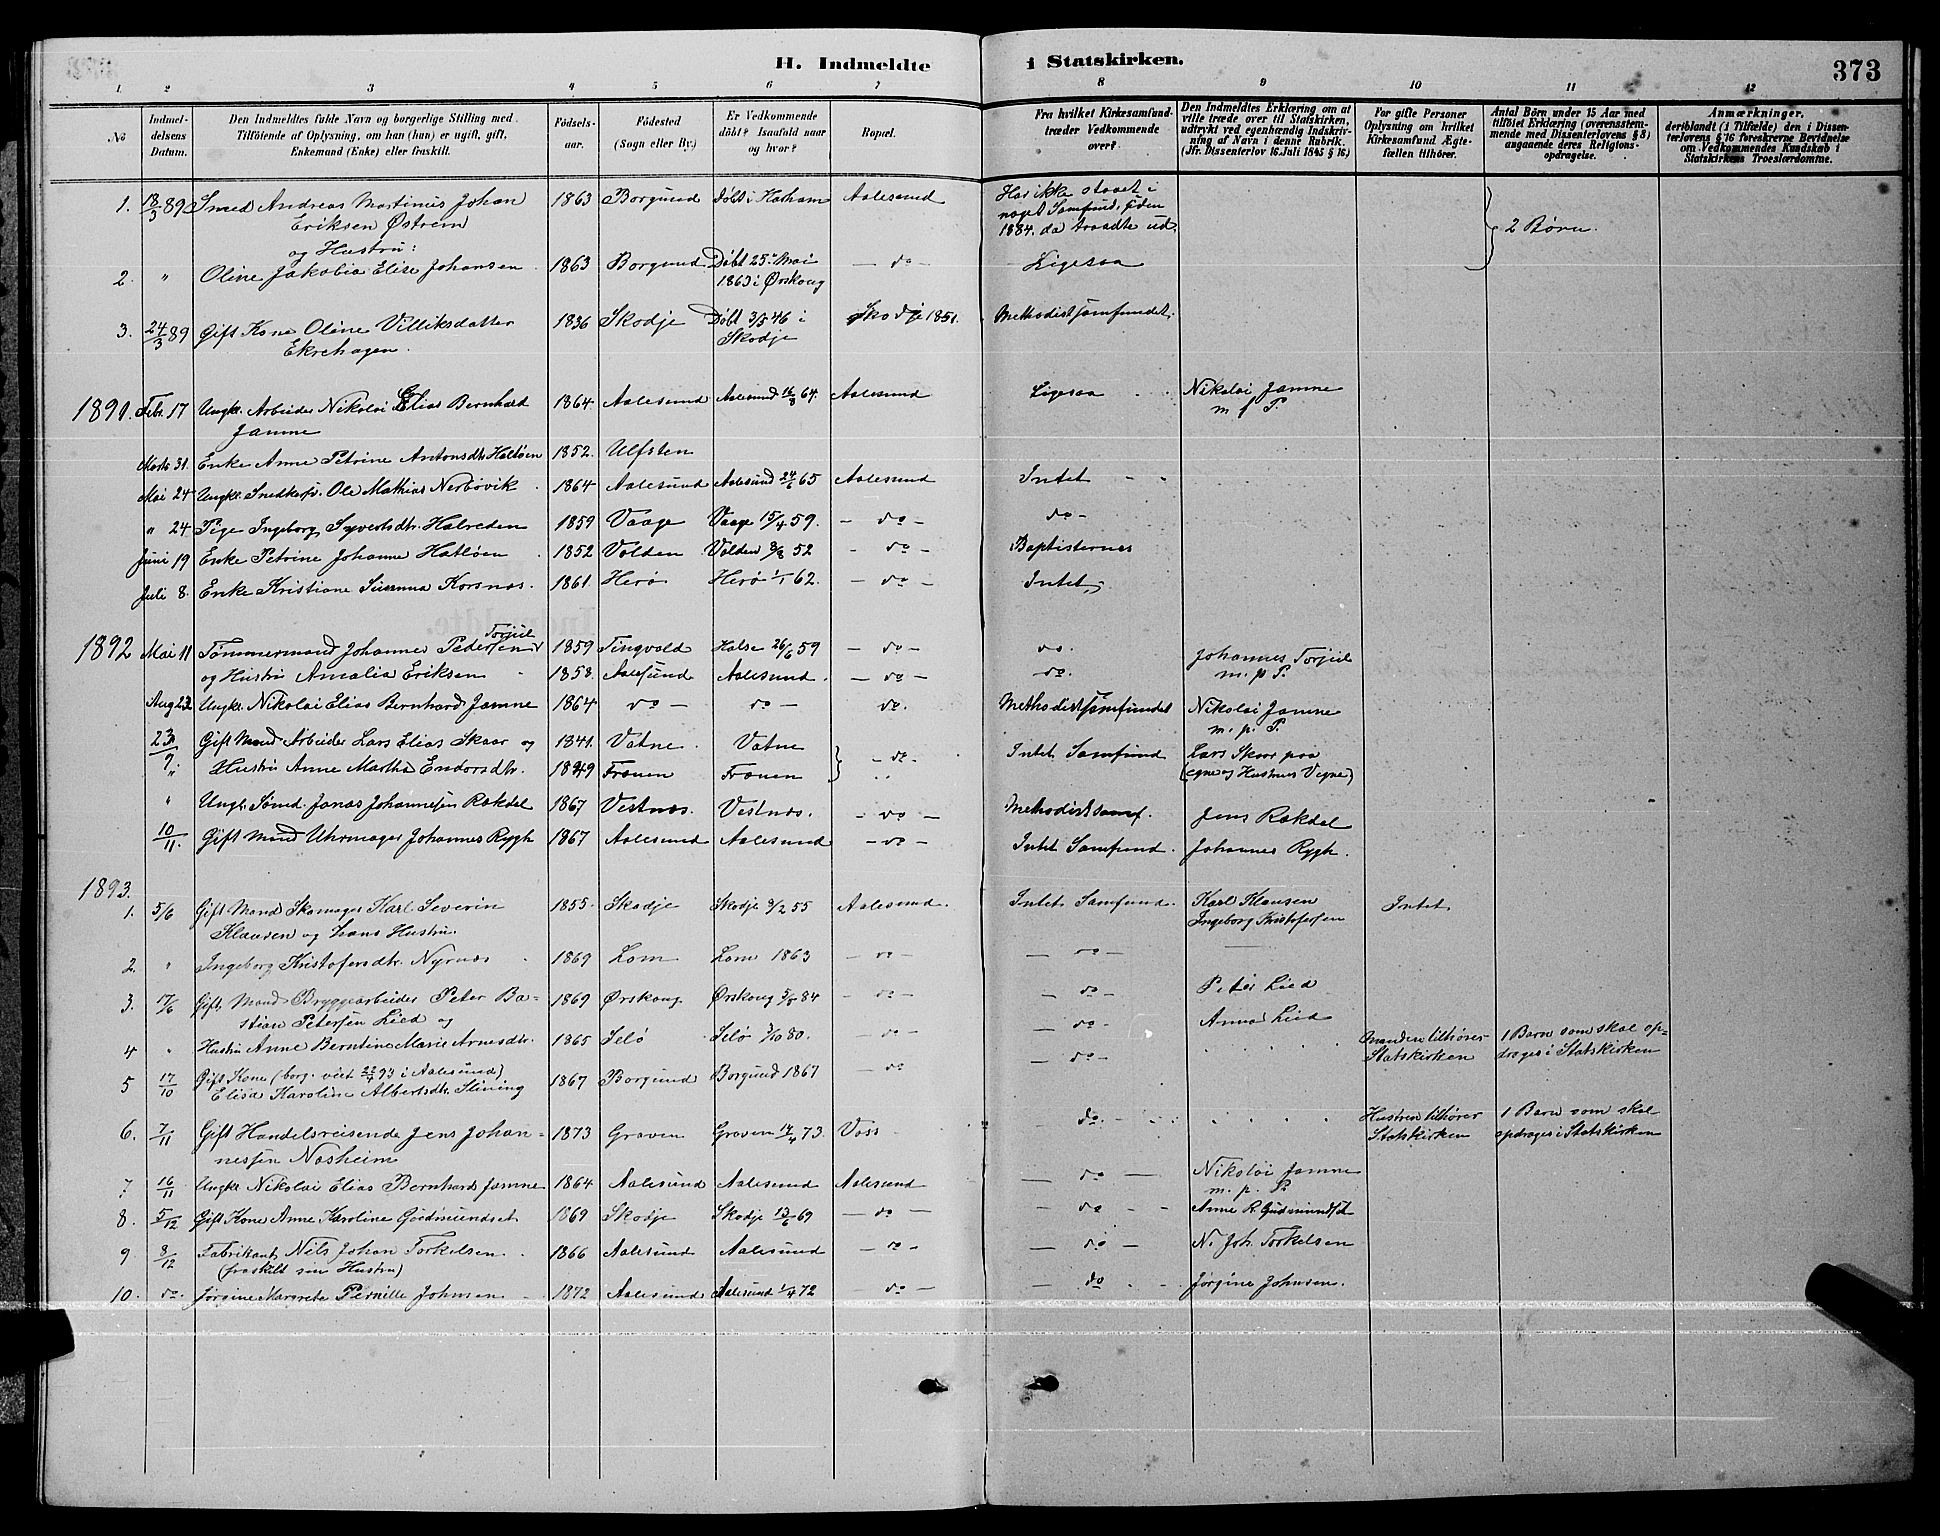 H. Indmeldte i Statskirken. 373
1. 2 3 4 5 6 7 8 9 10 11 12
No
Indmeldelsens Datum.
Den Indmeldtes fulde Navn og borgerlige Stilling med Tilföiende af Oplysning, om han (hun) er ugift, gift, Enkemand (Enke) eller fraskilt.
Födselsaar.
Födested (Sogn eller By.)
Er Vedkommende döbt? Isaafald naar og hvor?
Bopæl.
Fra hvilket Kirkesamfund træder Vedkommende over?
Den Indmeldtes Erklæring om at ville træde over til Statskirken, udtrykt ved egenhændig Indskrivning af Navn i denne Rubrik. (Jfr. Dissenterlov 16. Juli 1845 § 16)
For gifte Personer Oplysning om hvilket Kirkesamfund Ægtefællen tilhörer.
Antal Börn under 15 Aar med tilföiet Erklæring (overensstemmende med Dissenterlovens § 8) angaaende deres Religionsopdragelse.
Anmærkninger, deriblandt (i Tilfælde) den i Dissenterlovens § 16 foreskrevne Bevidnelse om Vedkommendes Kundskab i Statskirkens Troeslærdomme.
1. 18/3 89 Smed Andreas Martinus Johan 1863 Borgund Döbt i Aalesund Har ikke staaet i
Eriksen Østrem noget Samfund, siden
og Hustru: 1884, da traadte ud. 2 Børn.
2. " Oline Jakobia Elise Johansen 1863 Borgund Döbt 25 Mai - do - Ligesaa
1863 i Ørskoug
3. 24/3 89 Gift Kone Oline Villiksdatter 1836 Skodje Döbt 3/5 46 i Skodje 1851. Methodistsamfundet.
Ekrehagen. Skodje
1891. Febr. 17 Ungk. Arbeider Nikolai Elias Bernhard 1864 Aalesund Aalesund 16/8 64. Aalesund Ligesaa Nikolai Jamne
Jamne m f P.
Marts 31. Enke Anne Petrine Antonsdtr. Hatløen 1852. Ulfsten
Mai 24 Ungk. Snedkersv. Ole Mathias Nerbøvik 1864 Aalesund Aalesund 24/6 65 Aalesund Intet
" 24 Pige Ingeborg Syvertsdtr. Halreden 1859 Vaage Vaage 15/4 59. - do - do -
Juni 19 Enke Petrine Johanne Hatløen 1852 Volden Volden 8/8 52 - do - Baptisternes
Juli 8. Enke Kristiane Korsnæs. 1861. Herø Herø 1/1 62. - do - Intet
1892 Mai 11 Tømmermand Johannes Pedersen Torjul 1859 Tingvold Halse 26/6 59 - do - do. Johannes Torjul
og Hustru Amalia Eriksen 1858. Aalesund Aalesund. - do - do. m. p. P.
Aug 23 Ungk. Nikolai Elias Bernhard Jamne 1864 do - do - do. Methodistsamfundet Nikolai Jamne
m. p. P.
23/9 Gift Mand Arbeider Lars Elias Skaar og 1841. Vatne Vatne - do - Intet Samfund Lars Skaar paa
" Hustru Anne Martha Endersdtr. 1849 Frænen Frænen (egne og Hustrues Vegne)
" Ungk. Sømd. Jonas Johannesen Rakdal 1867 Vestnæs. Vestnæs. - do - Methodistsamf. Jens Rakdal
10/11. Gift Mand Uhrmager Johannes Rygh 1867 Aalesund Aalesund - do - Intet Samfund. Johannes Rygh.
1893.
1. 5/6 Gift Mand Skomager Karl Severin 1855. Skodje Skodje 9/2 55 Aalesund. Intet Samfund. Karl Klausen Intet
Klausen og hans Hustru. Ingeborg Kristofersen
2. " Ingeborg Kristofersdtr. Nyrnæs 1869 Lom Lom 1863 - do - - do -
3. 17/6 Gift Mand Bryggearbeider Peter Ba- 1869 Ørskoug Ørskoug 5/5 84 - do - - do - Peter Lied
stian Petersen Lied og
4 " Hustru Anne Berntine Marie Arnesdtr. 1865 Selø Selø 3/10 80. - do - - do - Anna Lied
5 17/10 Gift Kone (borg. viet 22/4 93 i Aalesund) 1867 Borgund Borgund 1867 - do - do - Manden tilhører Statskirken 1 Barn som skal opdrages i Statskirken
Elisa Karoline Albertsdtr. Slining
6. 7/11 Gift Handelsreisende Jens Johan- 1873 Graven Graven 14/4 73. Voss do - Hustruen tilhører Statskirken 1 Barn som skal opdrages i Statskirken
nessen Næsheim
7. 16/11 Ungk. Nikolai Elias Bernhard Jamne 1864 Aalesund Aalesund Aalesund do - Nikolai Jamne
m. p. P.
8. 5/12 Gift Kone Anne Karoline Gudmundset 1869 Skodje Skodje 13/6 69 - do - - do - Anne K Gudmundset
9 8/12 Fabrikant Nils Johan Torkelsen 1866 Aalesund Aalesund - do - - do - N. Joh. Torkelsen
(fraskilt sin Hustru)
10. do. Jørgine Margrete Pernille Johnsen 1872 Aalesund Aalesund 1/4 72 - do - - do - Jørgine Johnsen.